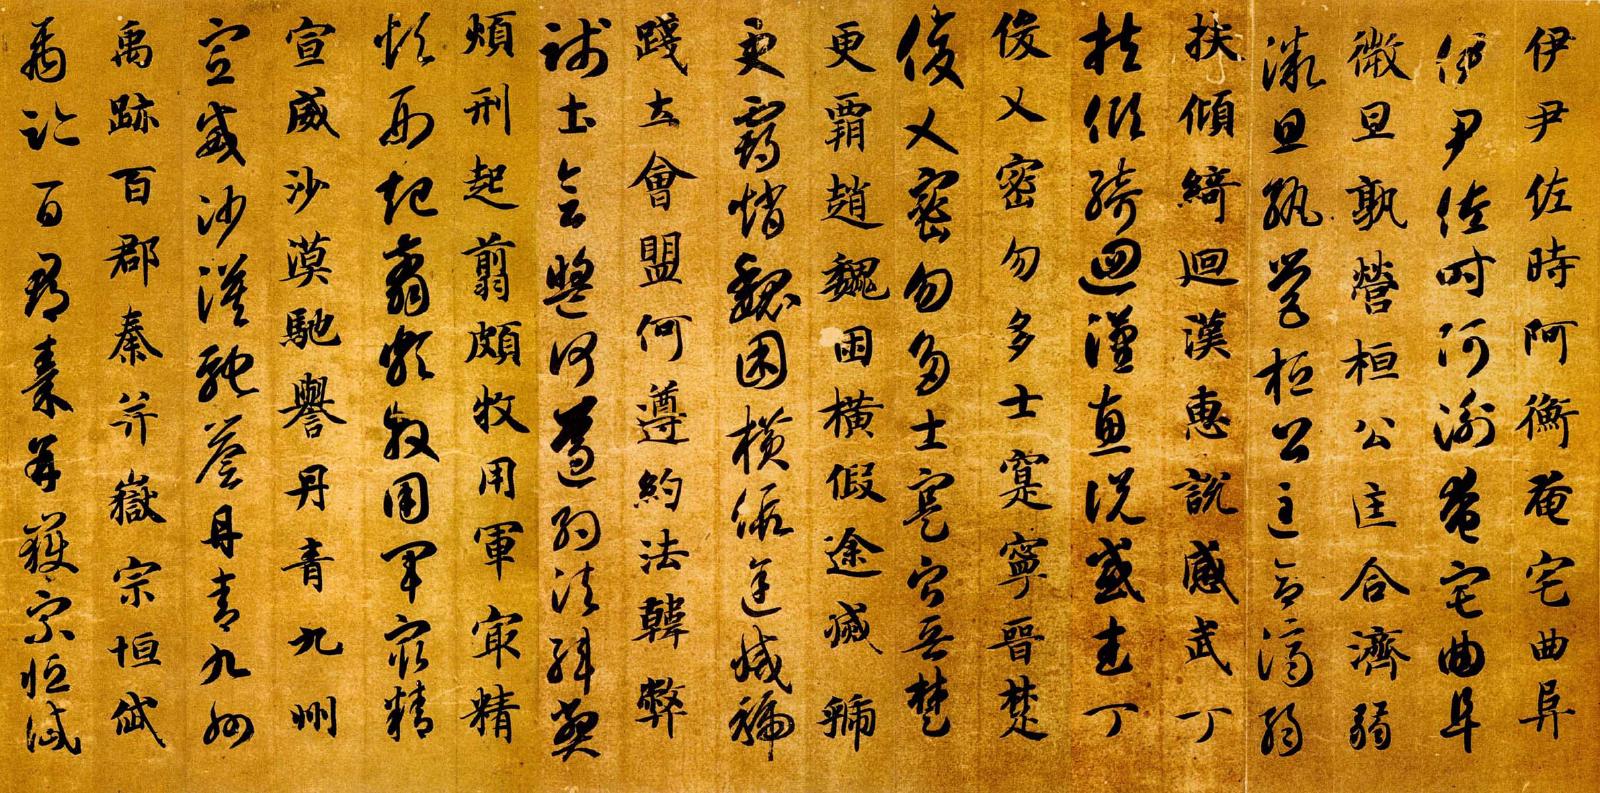 伊尹佐時阿衡奄宅曲阜
伊尹佐時阿衡奄宅曲阜
微旦孰營桓公匡合濟弱
微旦孰營桓公匡合濟弱
扶傾綺迴漢惠説感武丁
扶傾綺迴漢惠説感武丁
俊乂密勿多士寔寧晉楚
俊乂密勿多士寔寧晉楚
更霸趙魏困橫假途滅虢
更霸趙魏困橫假途滅虢
踐土會盟何遵約法韓弊
踐土會盟何遵約法韓弊
煩刑起翦頗牧用軍最精
煩刑起翦頗牧用軍最精
宣威沙漠馳譽丹青九州
宣威沙漠馳譽丹青九州
禹跡百郡秦并嶽宗恒岱
禹跡百郡秦并嶽宗恒岱